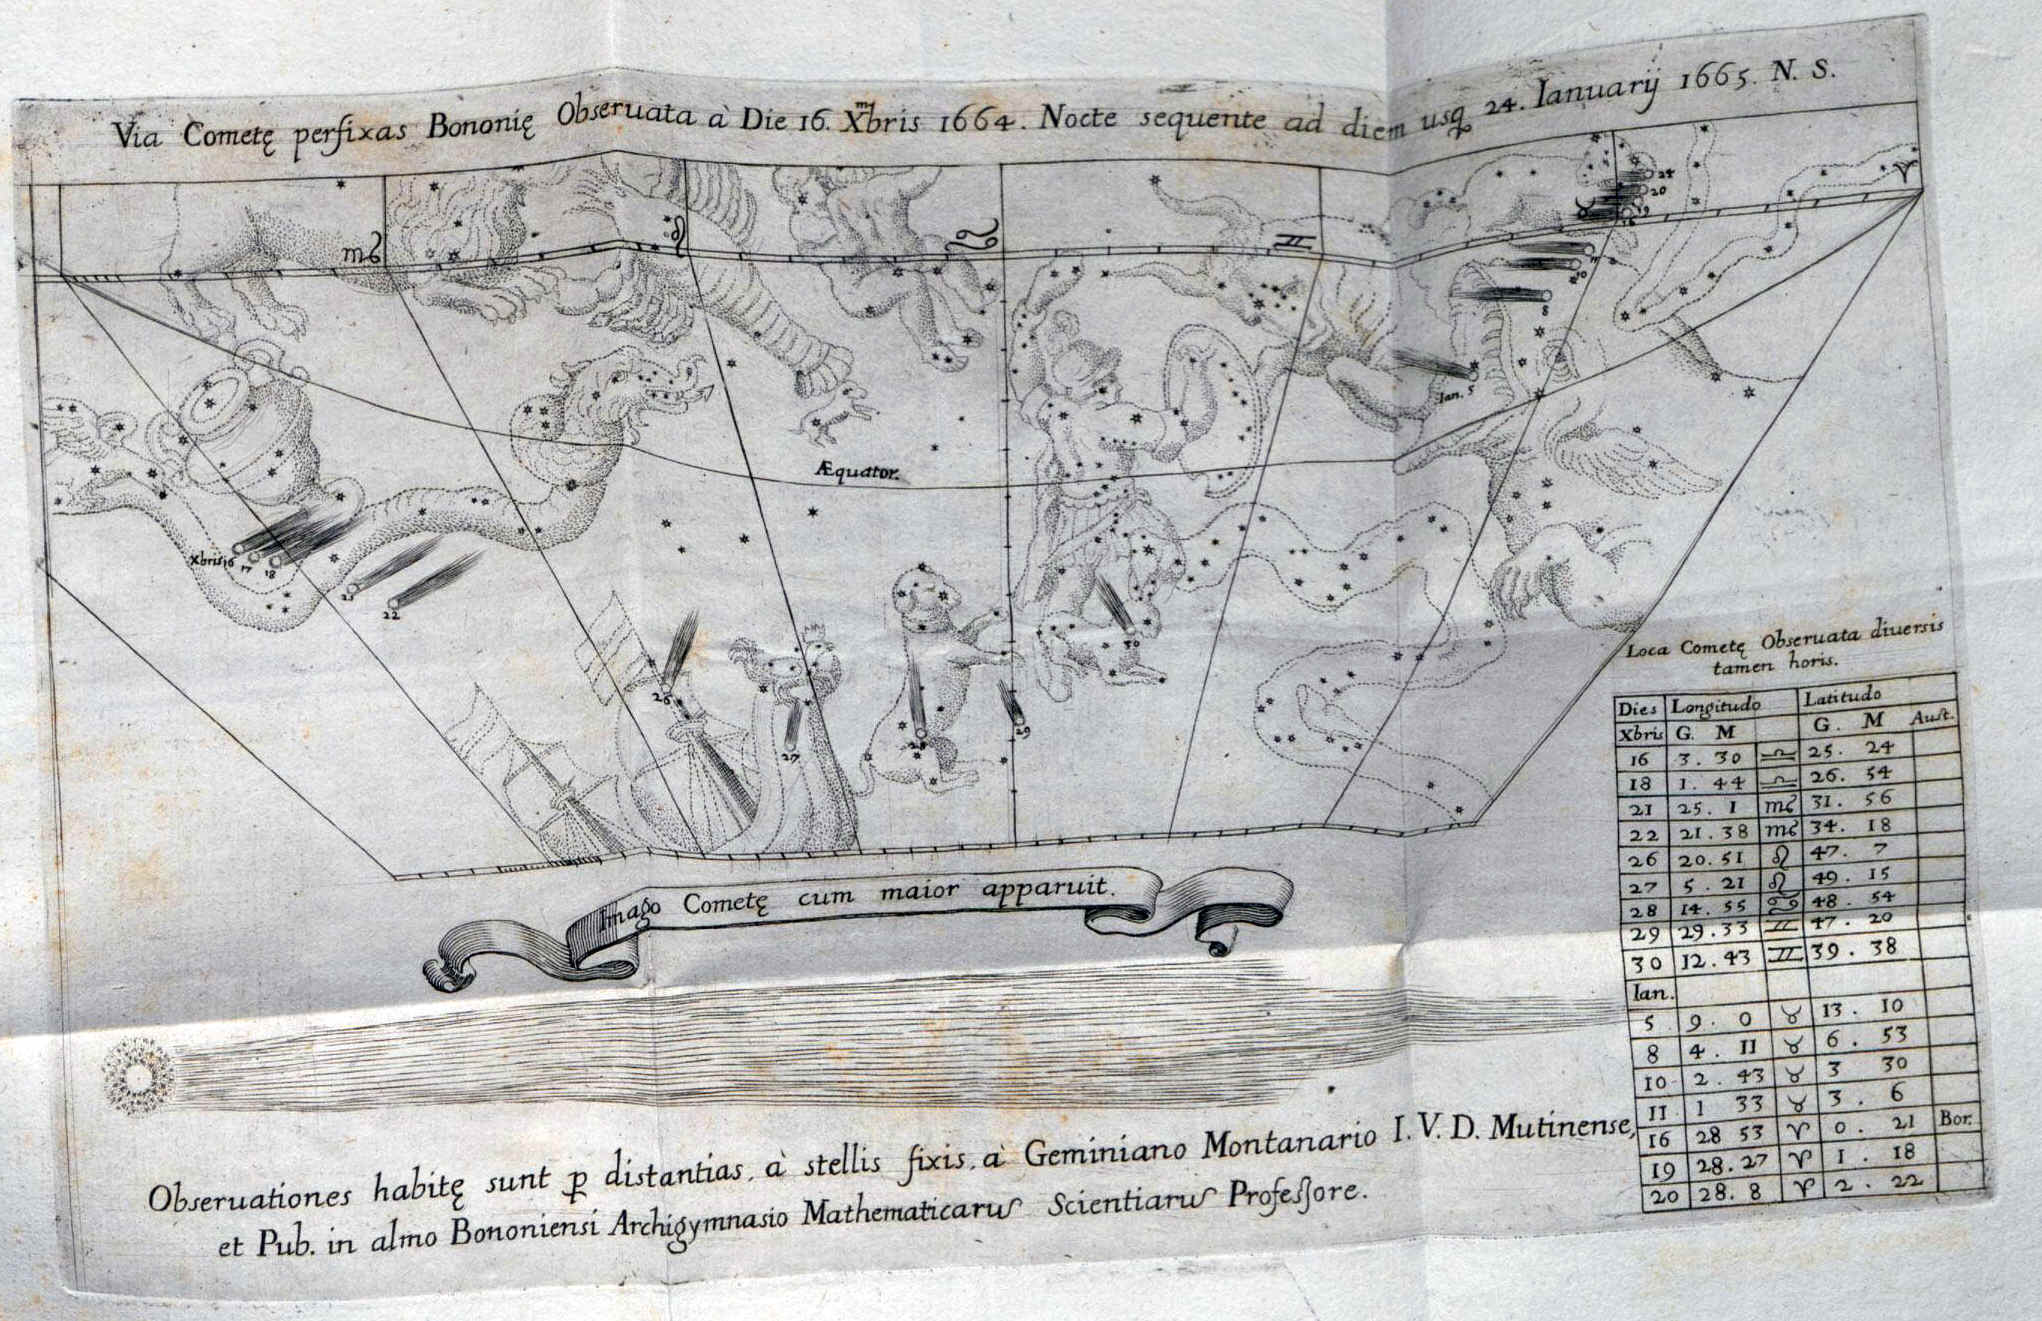 Via Cometę perfixas Bononię Obseruata à Die 16. Xmbris 1664. Nocte sequente ad diem usq 24. Ianuarij 1665. N. S.
♍ ♌ ♋ ♊ ♉ ♈
24
20
19
16
11
10
8
Ian. 5
Æquator.
Xbris 16 17 18
21
22
26
27
28
29
30
Loca Cometę Obseruata diuersis
tamen horis.
Dies Longitudo Latitudo
Xbris G. M G. M Aust.
16 3. 30 ♎ 25. 24
18 1. 44 ♎ 26. 54
21 25. 1 ♍ 31. 56
22 21. 38 ♍ 34. 18
26 20. 51 ♌ 47. 7
27 5. 21 ♌ 49. 15
28 14. 55 ♋ 48. 54
29 29. 33 ♊ 47. 20
30 12. 43 ♊ 39. 38
Ian.
5 9. 0 ♉ 13. 10
8 4. 11 ♉ 6. 53
10 2. 43 ♉ 3 30
11 1 33 ♉ 3. 6
16 28 53 ♈ 0. 21 Bor.
19 28. 27 ♈ 1. 18
20 28. 8 ♈ 2. 22
Imago Cometę cum maior apparuit.
Obseruationes habitę sunt ꝑ distantias, à stellis fixis, à Geminiano Montanario I. V. D. Mutinense,
et Pub. in almo Bononiensi Archigymnasio Mathematicarũ Scientiarũ Profeſsore.